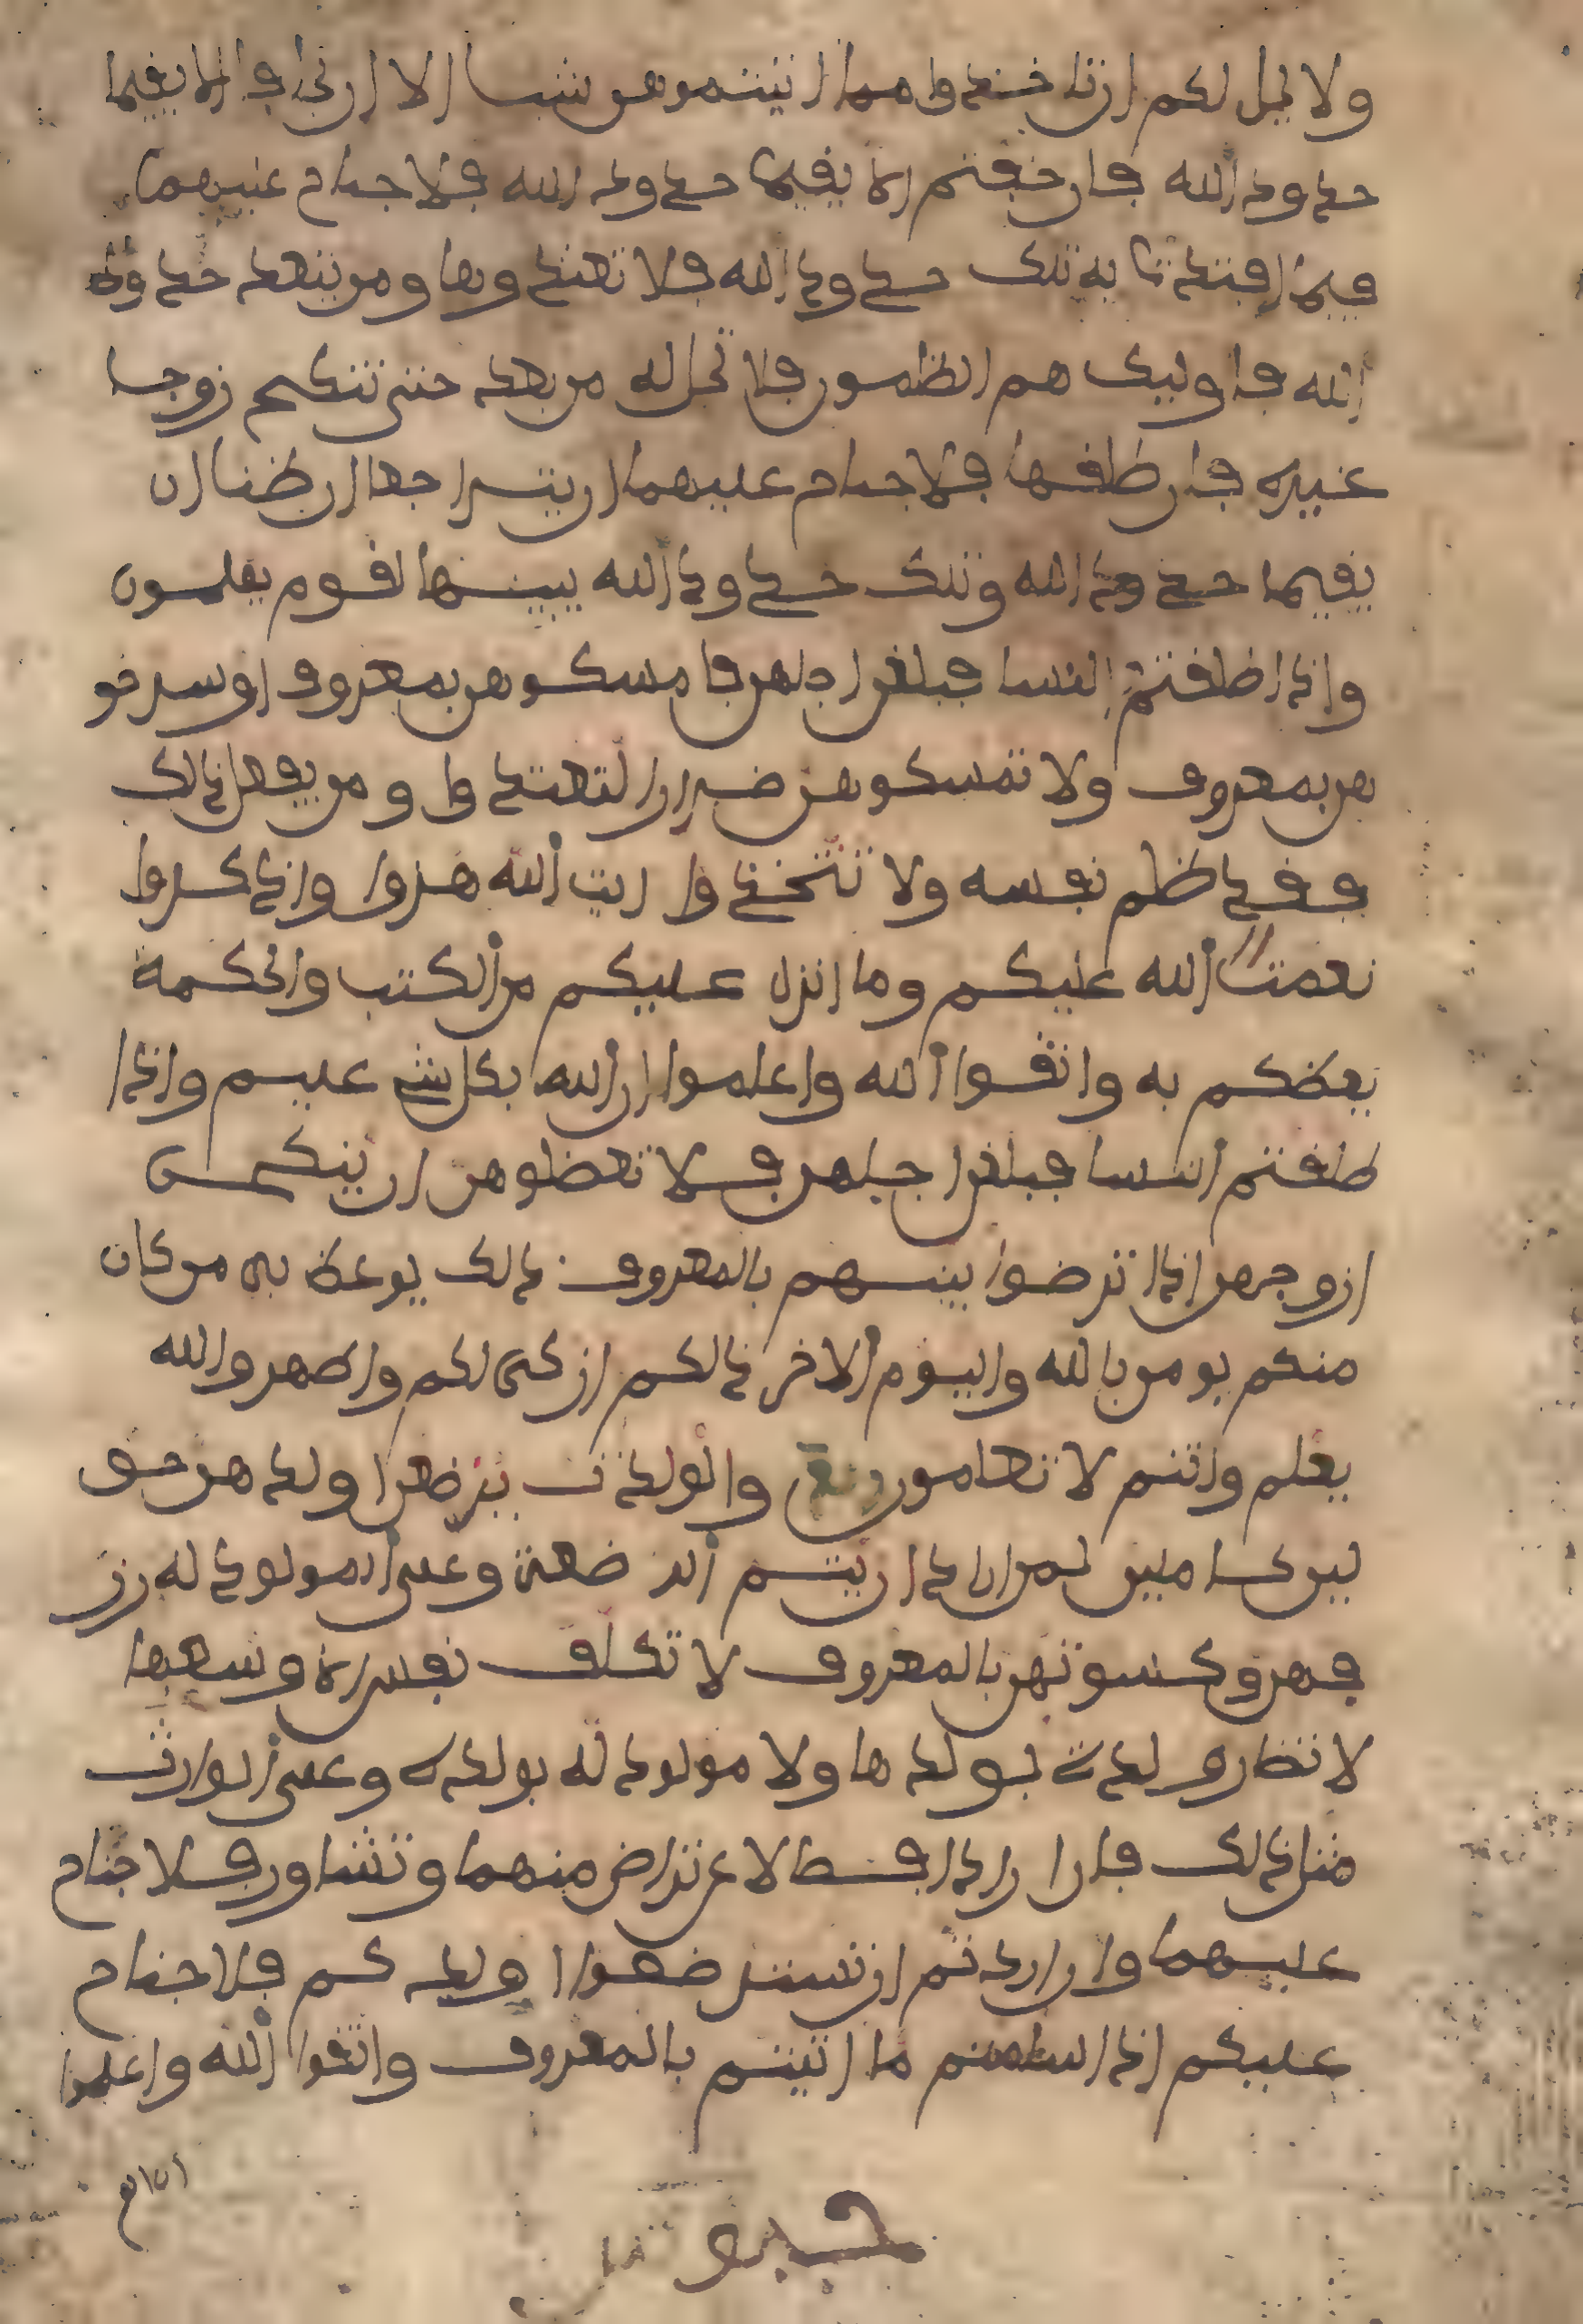 ولا يحل لكم ان تاخذوا مما اتيتموهن شيا الا ان يخافا الا يقيما
حدود الله فان خفتم الا يقيما حدود الله فلا جناح عليهما
فيما افتدت به تلك حدود الله فلا تعتدوها ومن يتعد حدود
الله فاوليك هم الظلمون فلا تحل له من بعد حتى تنكح زوجا
غيره فان طلقها فلا جناح عليهما ان يتراجعا ان ظنا ان
يقيما حدود الله وتلك حدود الله يبينها لقوم يعلمون
واذا طلقتم النسا فبلغن اجلهن فامسكوهن بمعروف او سرحو
هن بمعروف ولا تمسكوهن ضرارا لتعتدوا ومن يفعل ذالك
فقد ظلم نفسه ولا تتخذوا ايت الله هزوا واذكروا
نعمت الله عليكم وما انزل عليكم من الكتب والحكمة
يعظكم به واتقوا الله واعلموا ان الله بكل شي عليم واذا
طلقتم النسا فبلغن اجلهن فلا تعضلوهن ان ينكحن
ازوجهن اذا ترضوا بينهم بالمعروف ذالك يوعظ به من كان
منكم يومن بالله واليوم الاخر ذالكم ازكى لكم واطهر والله
يعلم وانتم لا تعلمون والولدت يرضعن اولدهن حو
لين كاملين لمن اراد ان يتم الرضعة وعلى المولود له رز
قهن وكسوتهن بالمعروف لا تكلف نفس الا وسعها
لا تضار ولدة بولدها ولا مولود له بولده وعلى الوارث
مثل ذالك فان ارادا فصالا عن تراض منهما وتشاور فلا جناح
عليهما وان اردتم ان تسترضعوا اولدكم فلا جناح
عليكم اذا سلمتم ما اتيتم بالمعروف واتقوا الله واعلموا